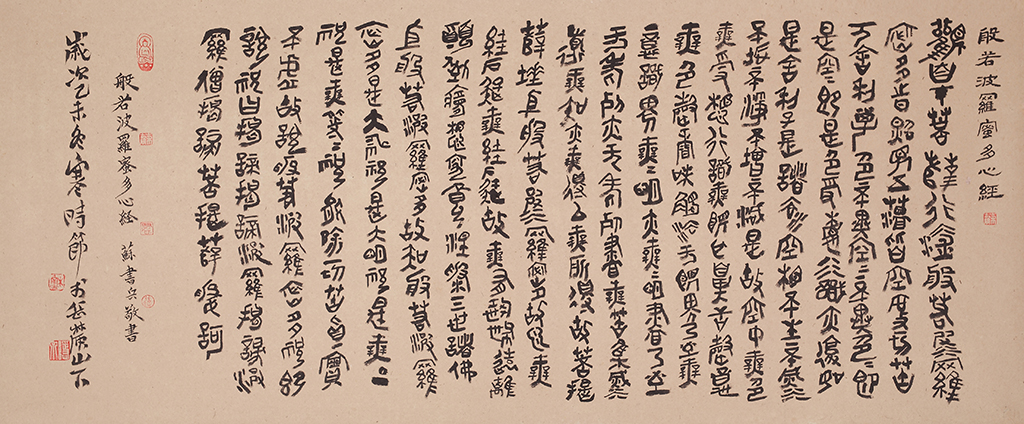 般若波羅蜜多心經
觀自在菩薩行深般若波羅
蜜多時照見五蘊皆空度一切苦
厄舍利子色不異空空不異色色即
是空空即是色受想行識亦復如
是舍利子是諸法空相不生不滅
不垢不淨不增不減是故空中無色
無受想行識無眼耳鼻舌身意
無色聲香味觸法無眼界乃至無
意識界無無明亦無無明盡乃至
無老死亦無老死盡無苦集滅
道無智亦無得以無所得故菩提
薩埵依般若波羅蜜多故心無
罣礙無罣礙故無有恐怖遠離
顛倒夢想究竟涅槃三世諸佛
依般若波羅蜜多故知般若波羅
蜜多是大神咒是大明咒是無上
咒是無等等咒能除一切苦真實
不虛故說般若波羅蜜多咒即
說咒曰揭諦揭諦波羅揭諦波
羅僧揭諦菩提薩婆訶
般若波羅蜜多心經 蘇書兵敬書
歲次乙未冬寒時節 書於山下